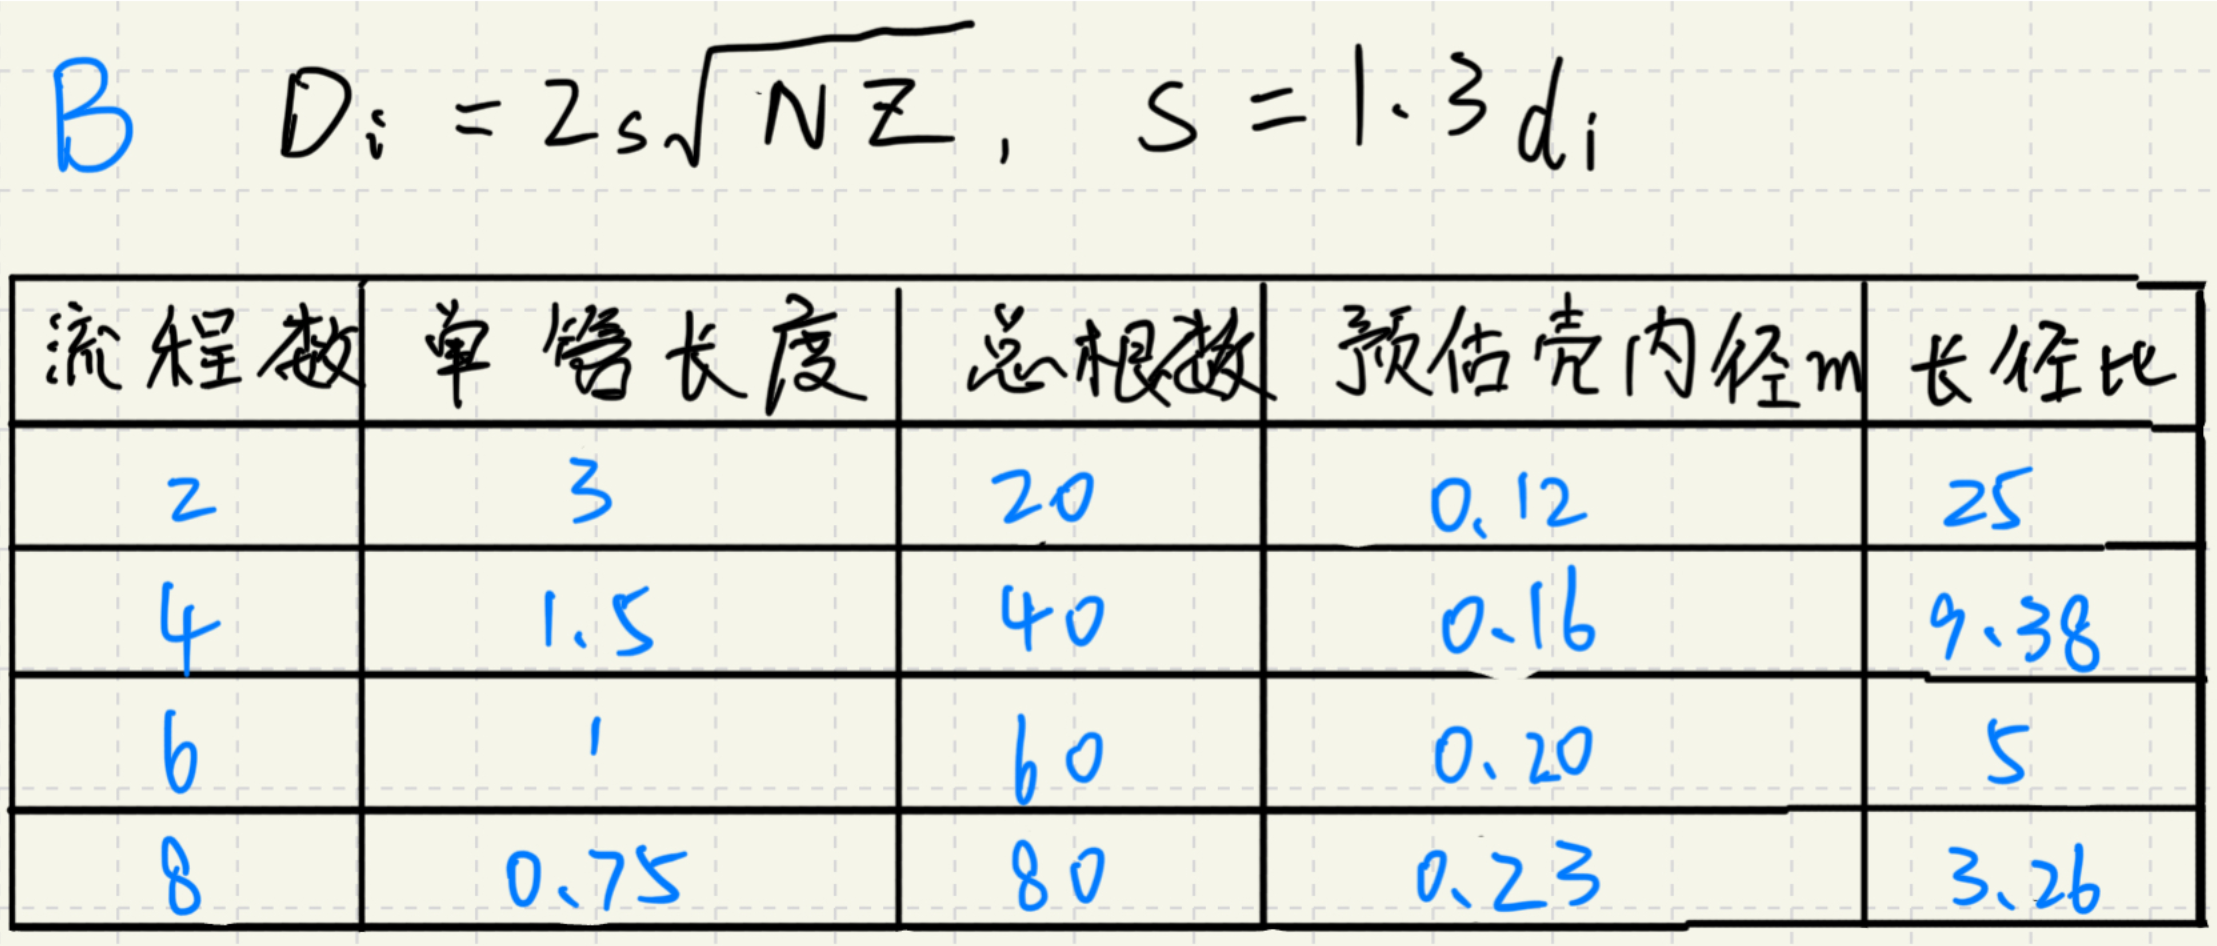 B Di = 2s√NZ, S = 1.3di
流程数 单管长度 总根数 预估壳内径m 长径比
2 3 20 0.12 25
4 1.5 40 0.16 9.38
6 1 60 0.20 5
8 0.75 80 0.23 3.26